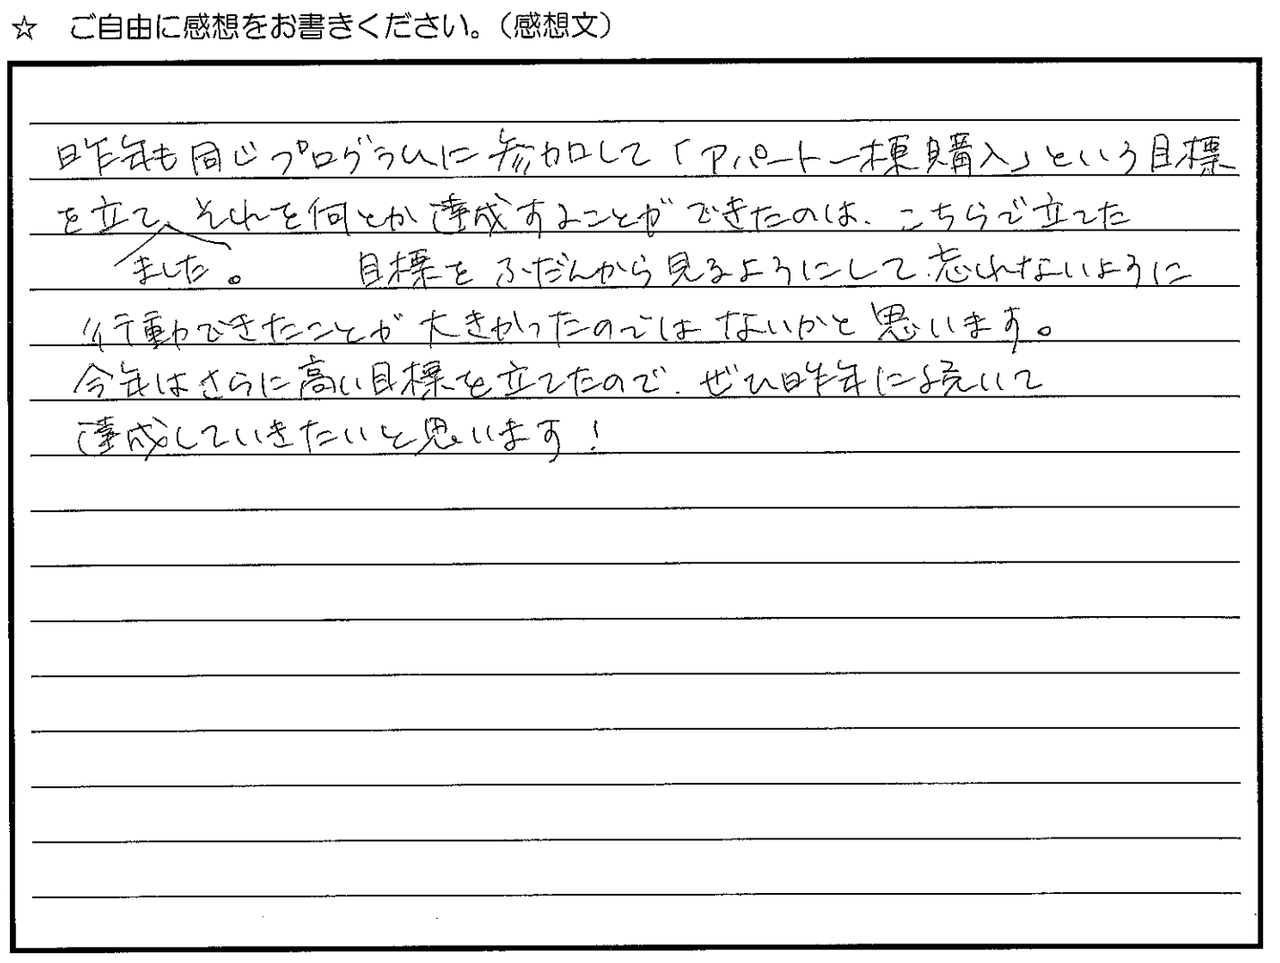 ☆ ご自由に感想をお書きください。（感想文）
昨年も同じプログラムに参加して「アパート一棟購入」という目標
を立て、それを何とか達成することができたのは、こちらで立てた
ました。 目標をふだんから見るようにして忘れないように
行動できたことが大きかったのではないかと思います。
今年はさらに高い目標を立てたので、ぜひ昨年に続いて
達成していきたいと思います！